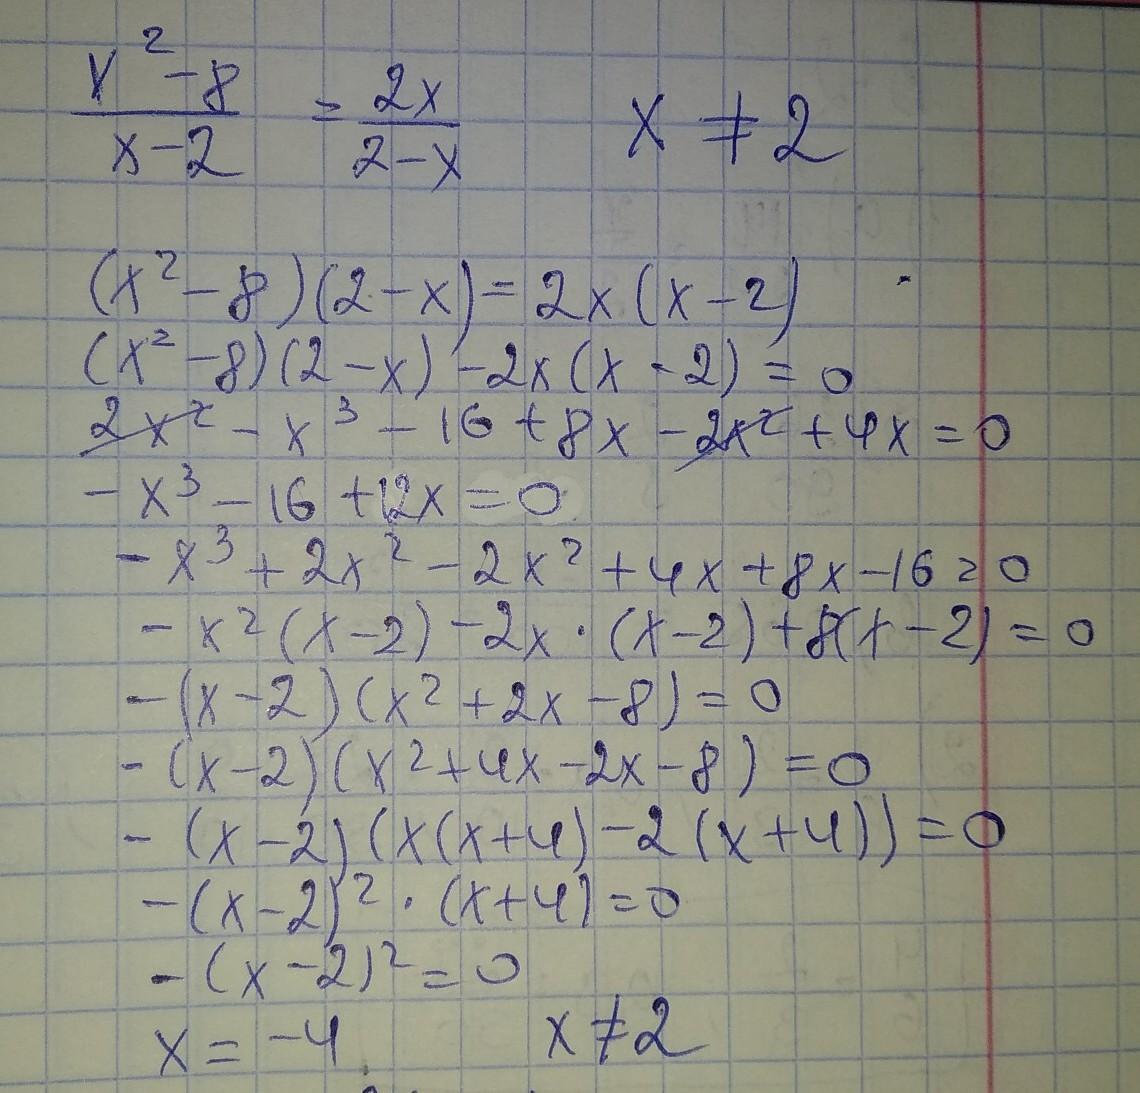 x²-8/x-2 = 2x/2-x x ≠ 2
(x²-8)(2-x)=2x(x-2)
(x²-8)(2-x)-2x(x-2)=0
2x²-x³-16+8x-2x²+4x=0
-x³-16+12x=0
-x³+2x²-2x²+4x+8x-16=0
-x²(x-2)-2x·(x-2)+8(x-2)=0
-(x-2)(x²+2x-8)=0
-(x-2)(x²+4x-2x-8)=0
-(x-2)(x(x+4)-2(x+4))=0
-(x-2)²·(x+4)=0
-(x-2)²=0
x=-4 x≠2